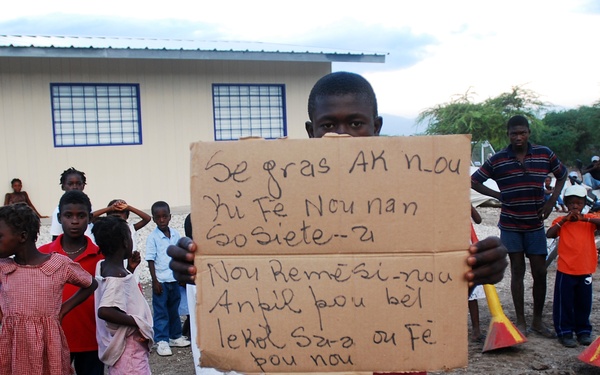 Se gras AK n-ou
Ki Fè Nou nan
SoSiete--a
Nou Remési-nou
Anpil pou bèl
lekòl Sa-a ou Fè
pou nou